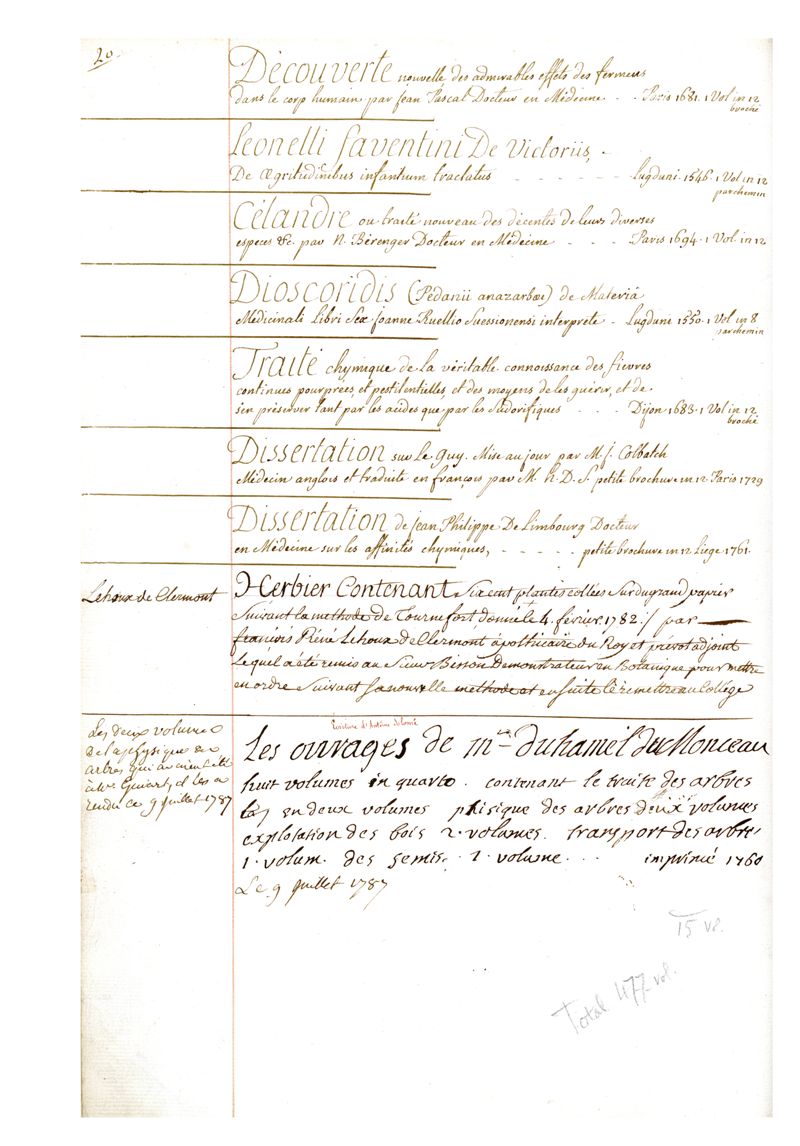 20.
Découverte nouvelle des admirables effets des fermens
dans le corp humain par Jean Pascal Docteur en Médecine - - Paris 1681. 1 Vol in 12
broché
Leonelli faventini De Victoriis, -
De Ægritudinibus infantium tractatus - - - - - - Lugduni. 1546. 1 Vol in 12
parchemin
Célandre ou traité nouveau des décentes de leurs diverses
especes &c. par N. Bérenger Docteur en Médecine - - - - Paris 1694. 1 Vol in 12
Dioscoridis (Pédanii anazarbæi) de Materiâ
Médicinali Libri Sex Joanne Ruellio Suessionensi interprête - Lugduni 1550. 1 Vol in 8
parchemin
Traité chymique de la véritable connoissance des fievres
continues pourprées, et pestilentielles, et des moyens de les guérir, et de
s'en préserver tant par les acides que par les Sudorifiques - - - Dijon 1683. 1 Vol in 12
broché
Dissertation sur le Guy. Mise au jour par M. J. Colbatch
Médecin anglois et traduite en françois par M. petite brochure in 12 Paris 1729
Dissertation de Jean Philippe De Limbourg Docteur
en Médecine sur les affinités chymiques, - - - - - petite brochure in 12 Liege 1761.
Lehoux de Clermont
Herbier Contenant Six cent plantes collées Sur du grand papier
Suivant la methode de Tournefort donné le 4. février. 1782. / par
françois Réné Lehoux de Clermont apothicaire du Roy et prevot adjoint
Lequel a été remis au Sieur Demonstrateur en Botanique pour mettre
en ordre Suivant Sa nouvelle methode et ensuite le remettre au Collége
Les deux volumes
de la physique des
arbres qui avoient été
rendu ce 9 juillet 1787
Ecriture d'Antoine
Les ouvrages de mr. duhamel du Monceau
huit volumes in quarto. contenant le traite des arbres
en deux volumes phisique des arbres deux volumes
explotation des bois 2. volumes. transport des arbres
1. volum. des semis. 1. volume. . . . imprimé 1760
Le 9 juillet 1787
15 vol.
Total 477 vol.